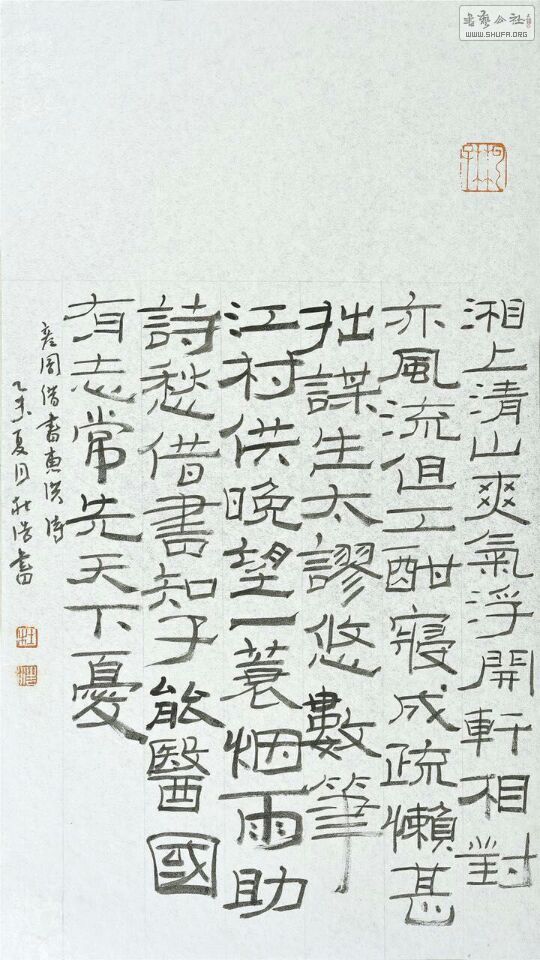 湘上清山爽氣浮開軒相對
亦風流但工酣寢成疏懶甚
拙謀生太謬悠數筆
江村供晚望一蓑烟雨助
詩愁借書知子能醫國
有志常先天下憂
彥周借書惠洪詩
乙未夏月杜浩書
杜
浩
書藝公社
WWW.SHUFA.ORG